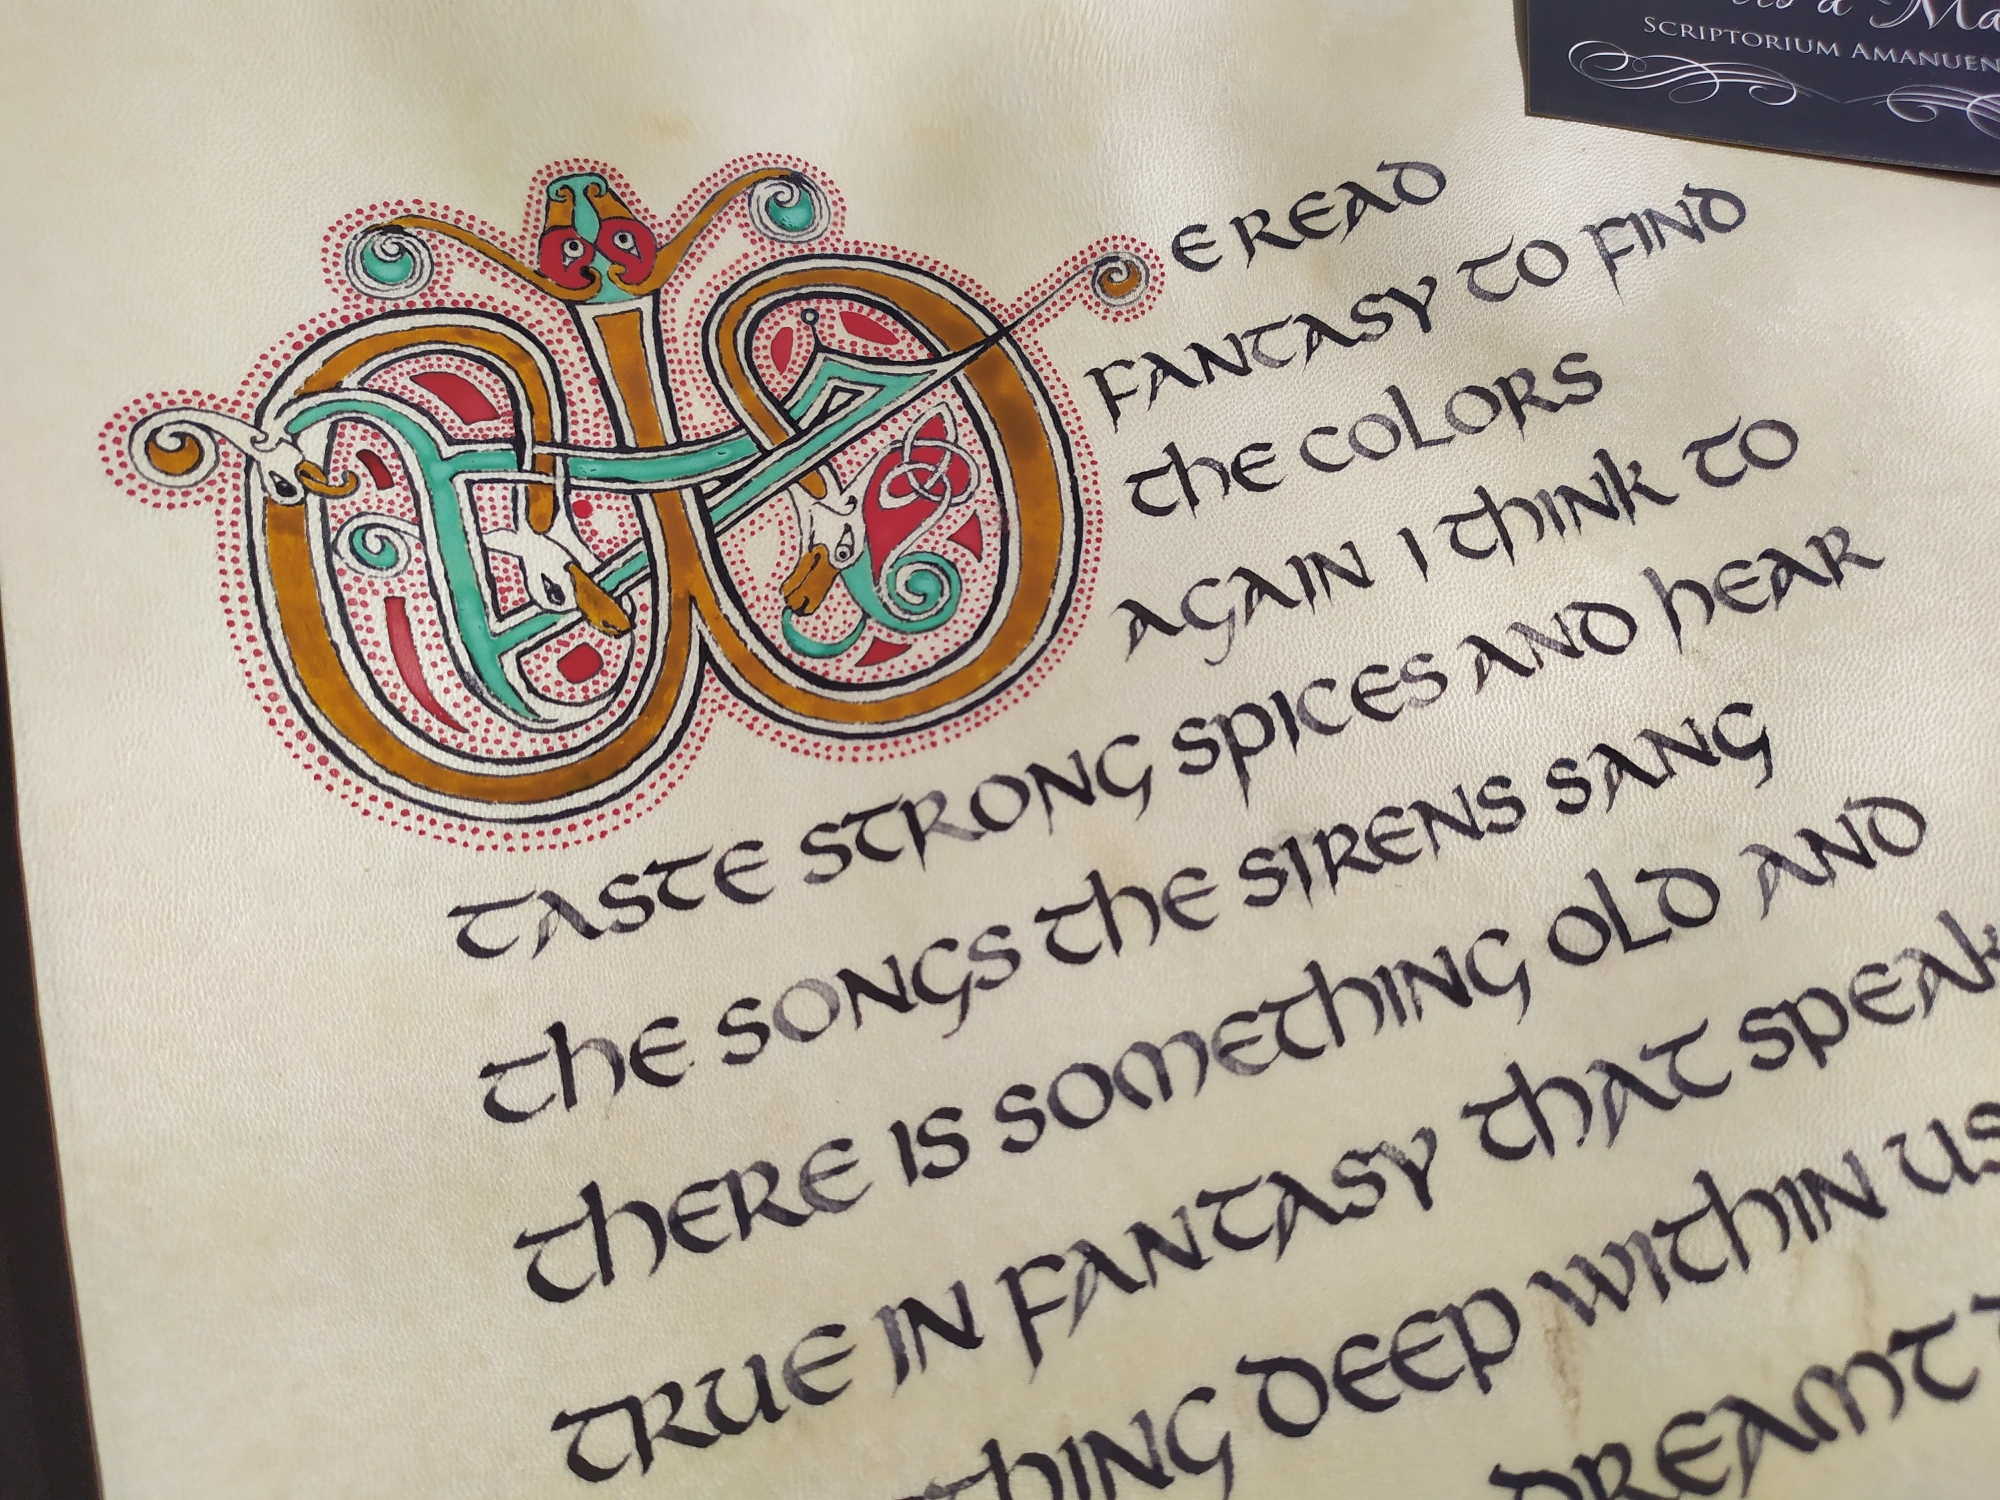 WE READ
FANTASY TO FIND
THE COLORS
AGAIN I THINK TO
TASTE STRONG SPICES AND HEAR
THE SONGS THE SIRENS SANG
THERE IS SOMETHING OLD AND
TRUE IN FANTASY THAT SPEAK
THING DEEP WITHIN US
DREAMT
SCRIPTORIUM AMANUEN